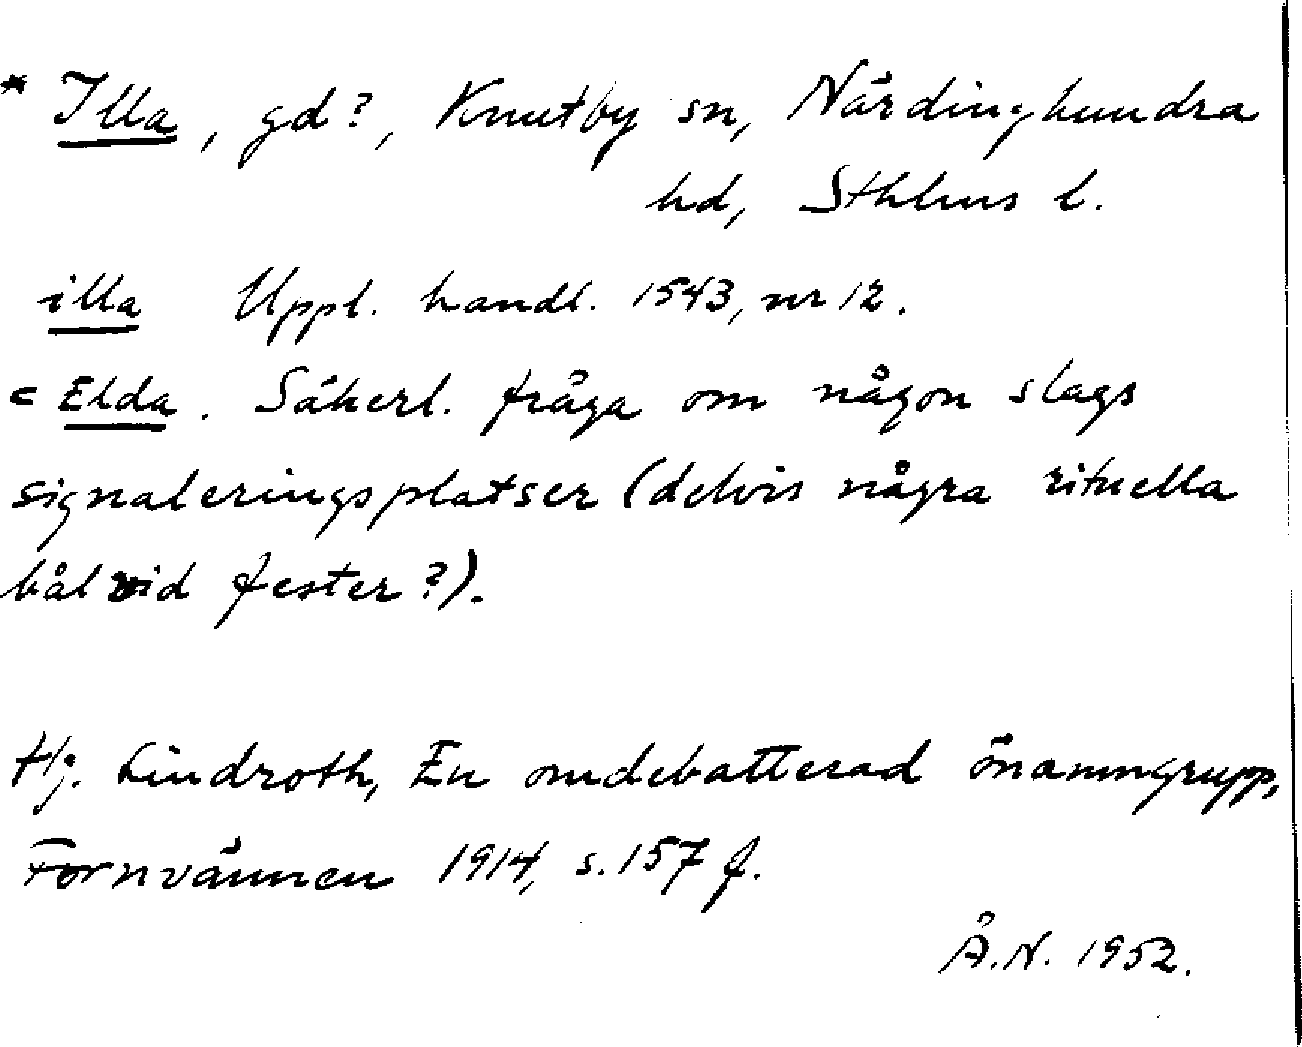 * Illa, gd?, Knutby sn, Närdinghundra
hd, Sthlms l.
illa Uppl. handl. 1543, nr 12.
= Elda. Säkerl. fråga om någon slags
signaleringsplatser (delvis några rituella
bål vid fester?).
Hj. Lindroth, En omdebatterad önamngrupp,
Fornvännen 1914, s. 157 f.
Å.N. 1952.